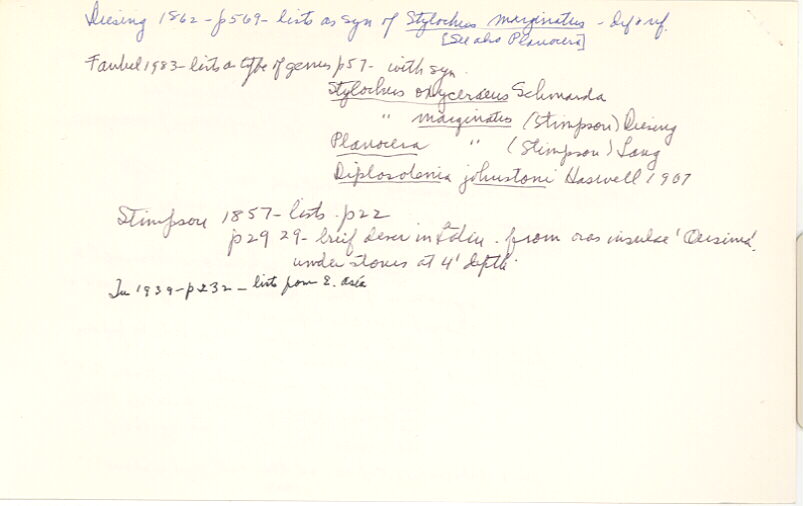 Diesing 1862 - p569 - lists as syn of Stylochus marginatus - def & ref.
[See also Planocera]
Faubel 1983 - lists as type of genus p57 - with syn.
Stylochus oxyceraeus Schmarda
" marginatus (Stimpson) Diesing
Planocera " (Stimpson) Lang
Diplosolenia johnstoni Haswell 1907
Stimpson 1857 - lists p22
p29 29 - brief descr in Latin. from oras insulae 'Ousima'.
under stones at 4' depth.
Tu 1939 - p232 - lists from E. Asia